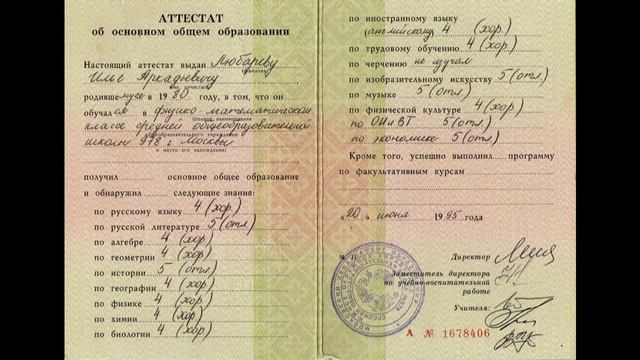 АТТЕСТАТ
об основном общем образовании
Настоящий аттестат выдан Любареву
Илье Аркадиевичу
родившемуся в 1980 году, в том, что он
обучался в физико-математическом
классе средней общеобразовательной
школы 978 г. Москвы
и место его нахождения)
получил основное общее образование
и обнаружил следующие знания:
по русскому языку 4 (хор.)
по русской литературе 5 (отл.)
по алгебре 4 (хор)
по геометрии 4 (хор)
по истории 5 (отл.)
по географии 4 (хор)
по физике 4 (хор)
по химии 4 (хор)
по биологии 4 (хор)
по иностранному языку
(английскому) 4 (хор.)
по трудовому обучению 4 (хор)
по черчению не изучал
по изобразительному искусству 5 (отл.)
по музыке 5 (отл.)
по физической культуре 4 (хор)
по ОИиВТ 5 (отл.)
по экономике 5 (отл.)
Кроме того, успешно выполнил программу
по факультативным курсам
«20» июня 1995 года
М. П.
Директор
Заместитель директора
по учебно-воспитательной
работе
Учителя:
А № 1678406